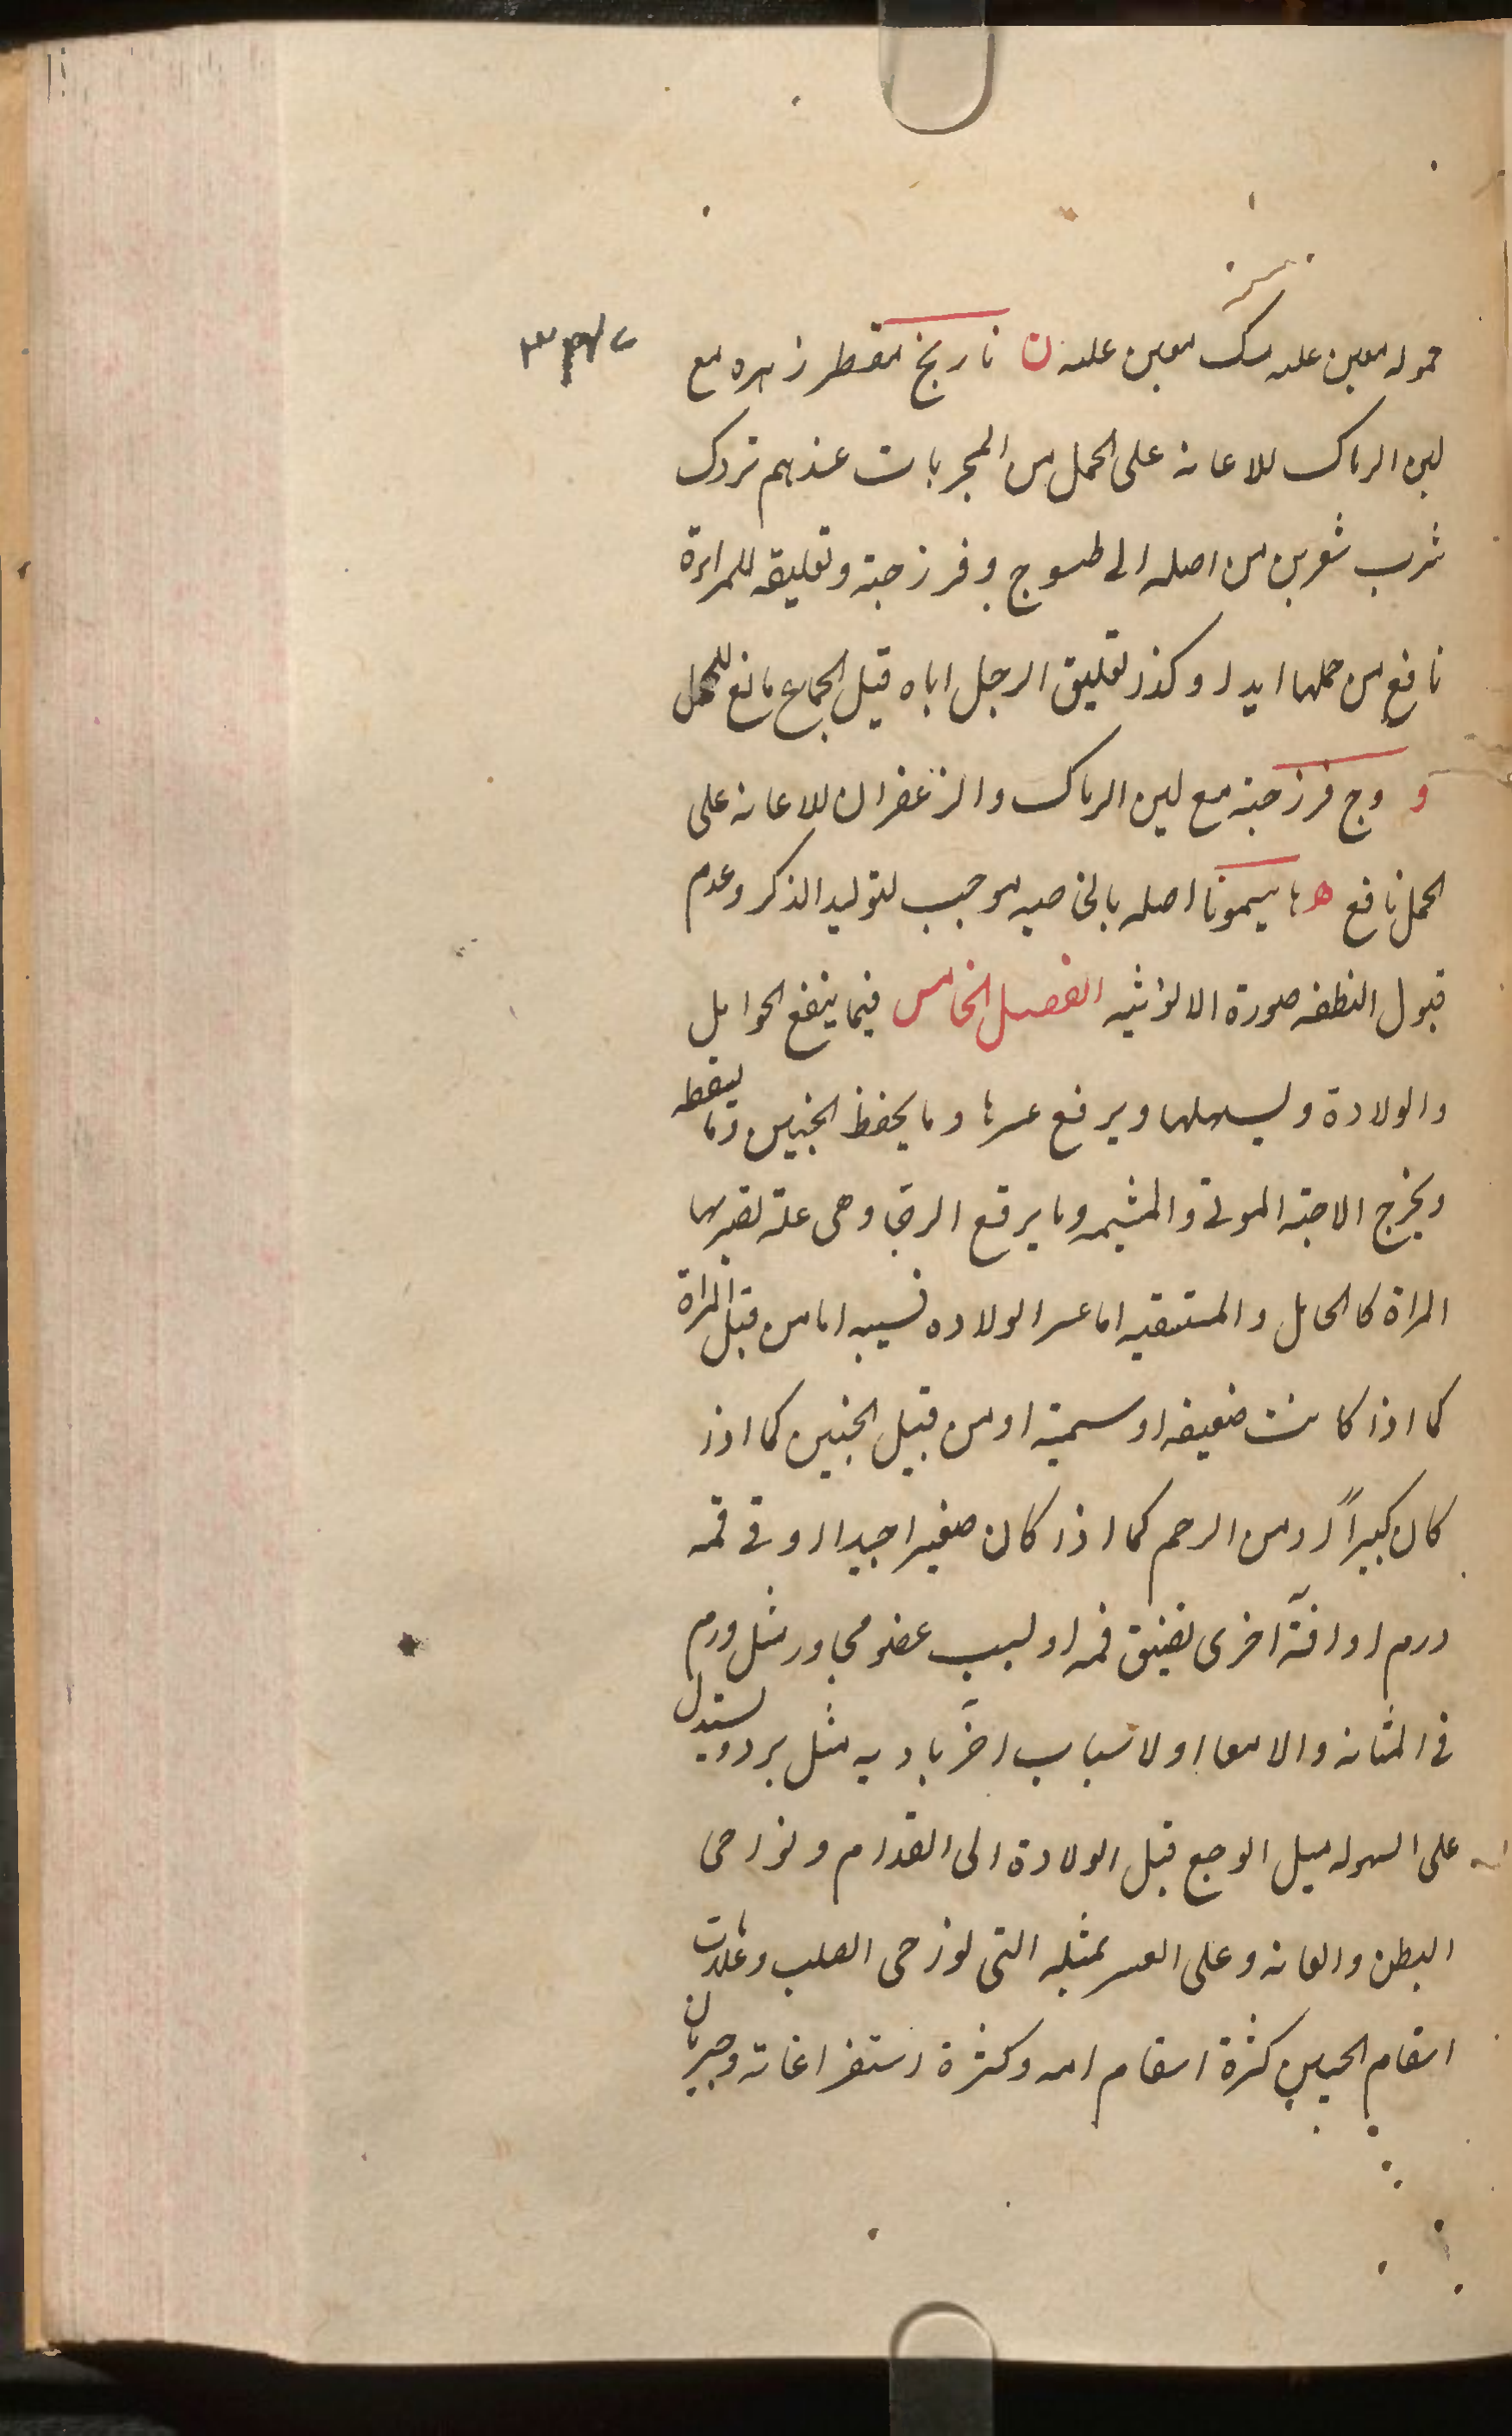 حموله معين عليه مسك معين عليه ن نارنج مقطر زهره مع
لبن الرماك للاعانة على الحمل من المجربات عندهم نردك
شرب شعرين من اصله الى طسوج وفرزجته وتعليقه للمراءة
نافع من حملها ابدا وكذا تعليق الرجل اياه قبل الجماع مانع للحمل
و وج فرزجته مع لبن الرماك والزعفران للاعانة على
الحمل نافع ه اصله بالخاصيه موجب لتوليد الذكر وعدم
قبول النطفه صورة الانوثيه الفصل الخامس فيما ينفع الحوامل
والولادة ويسهلها ويرفع عسرها وما يحفظ الجنين وما يسقطه
ويخرج الاجنة الموتى والمشيمه وما يرفع الرجا وهى علة تصير بها
المراة كالحامل والمستسقيه اما عسر الولاده فسببه اما من قبل المراة
كما اذا كانت ضعيفه او سمينة او من قبيل الجنين كما اذا
كان كبيراً او من الرحم كما اذا كان صغيرا جيدا او فى فمه
ورم او آفة اخرى تضيق فمه او لسبب عضو مجاور مثل ورم
فى المثانه والامعا او لاسباب اخر باديه مثل برد ويستدل
على السهوله ميل الوجع قبل الولادة الى القدام ونواحى
البطن والعانه وعلى العسر بميله الى نواحى الصلب وعلامات
اسقام الجنين كثرة اسقام امه وكثرة استفراغاته وجريان